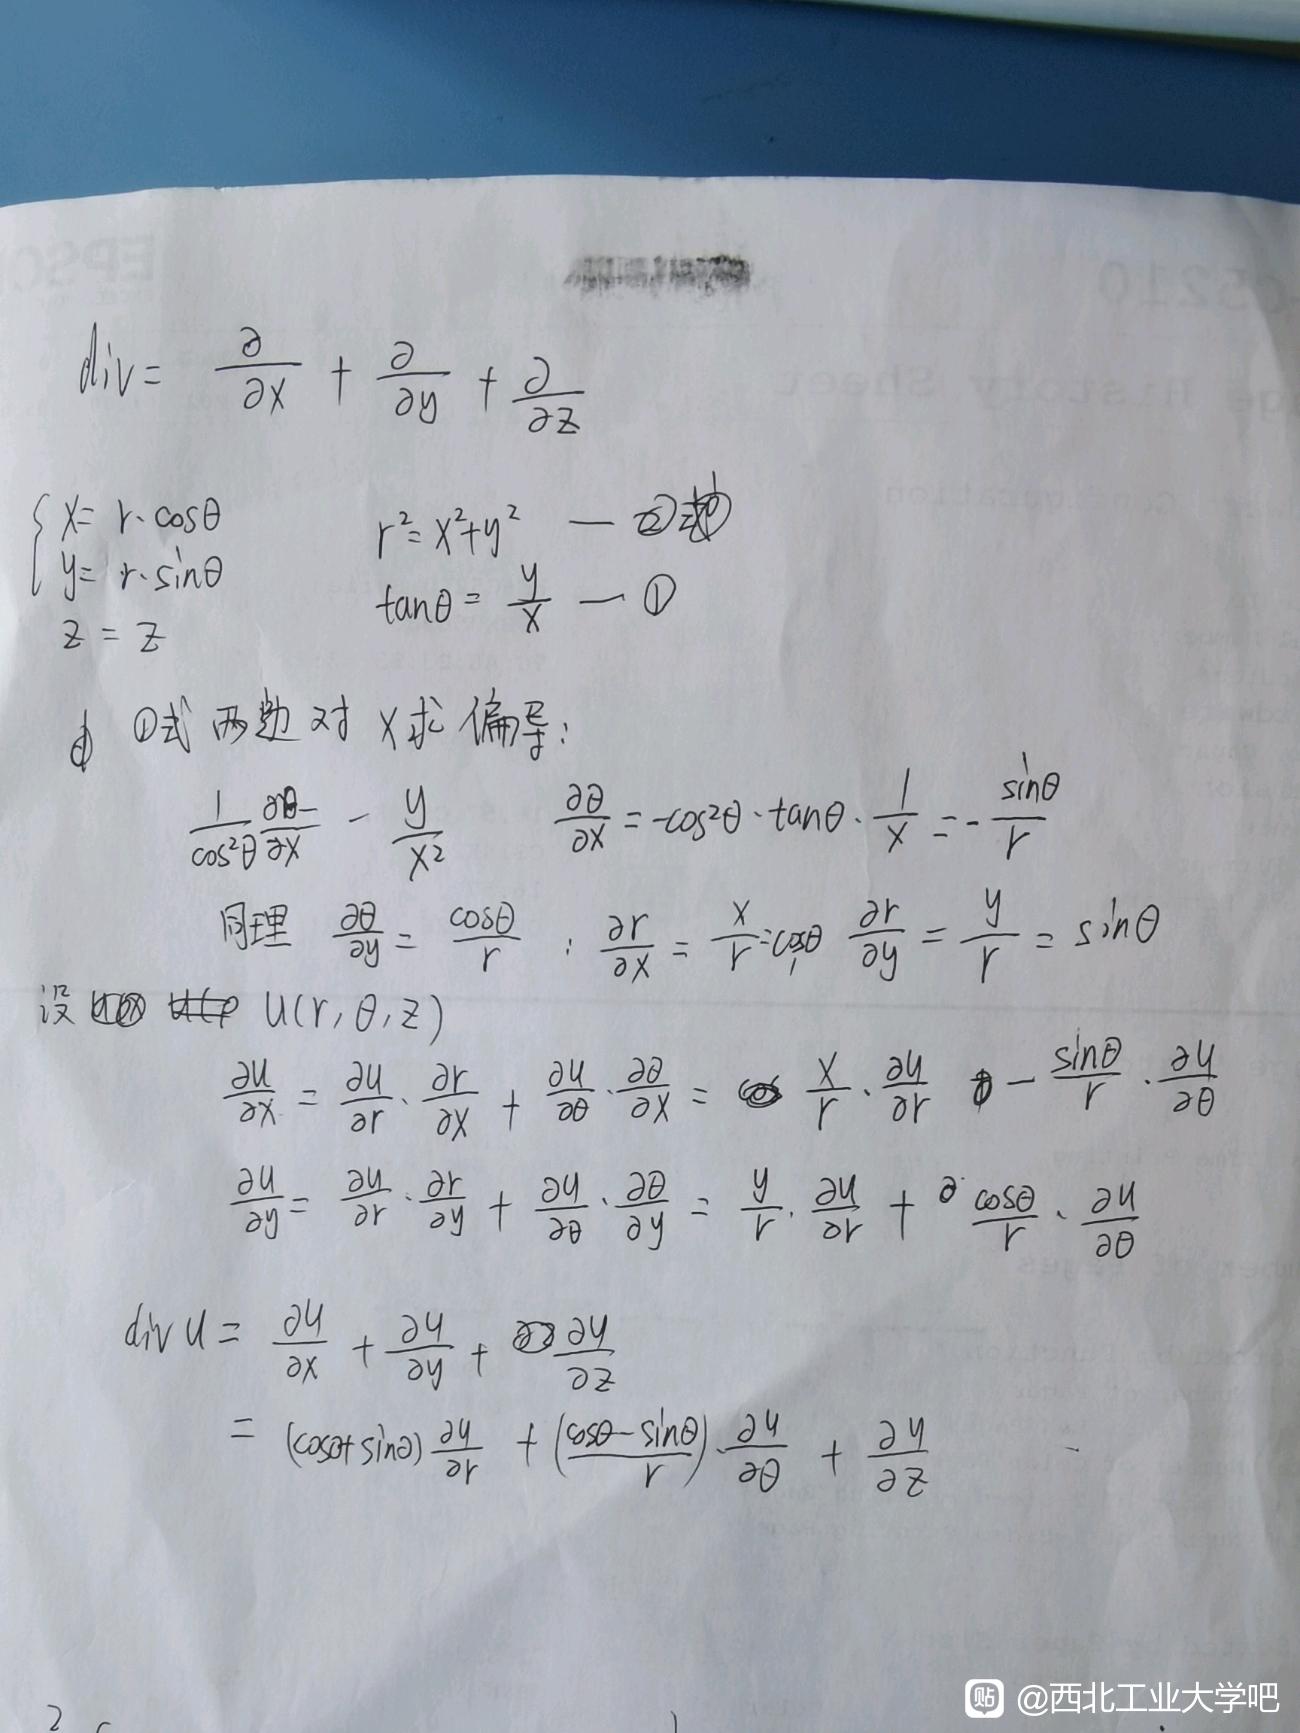 div = ∂/∂x + ∂/∂y + ∂/∂z
x = r·cosθ
r² = x²+y² — ②式
y = r·sinθ
tanθ = y/x — ①
z = z
①式两边对x求偏导:
1/cos²θ ∂θ/∂x - y/x² ∂θ/∂x = -cos²θ·tanθ·1/x = -sinθ/r
同理 ∂θ/∂y = cosθ/r ; ∂r/∂x = x/r = cosθ, ∂r/∂y = y/r = sinθ
设 u(r, θ, z)
∂u/∂x = ∂u/∂r·∂r/∂x + ∂u/∂θ·∂θ/∂x = x/r·∂u/∂r - sinθ/r·∂u/∂θ
∂u/∂y = ∂u/∂r·∂r/∂y + ∂u/∂θ·∂θ/∂y = y/r·∂u/∂r + cosθ/r·∂u/∂θ
div u = ∂u/∂x + ∂u/∂y + ∂u/∂z
= (cosθ+sinθ)∂u/∂r + (cosθ-sinθ/r)·∂u/∂θ + ∂u/∂z
贴 @西北工业大学吧